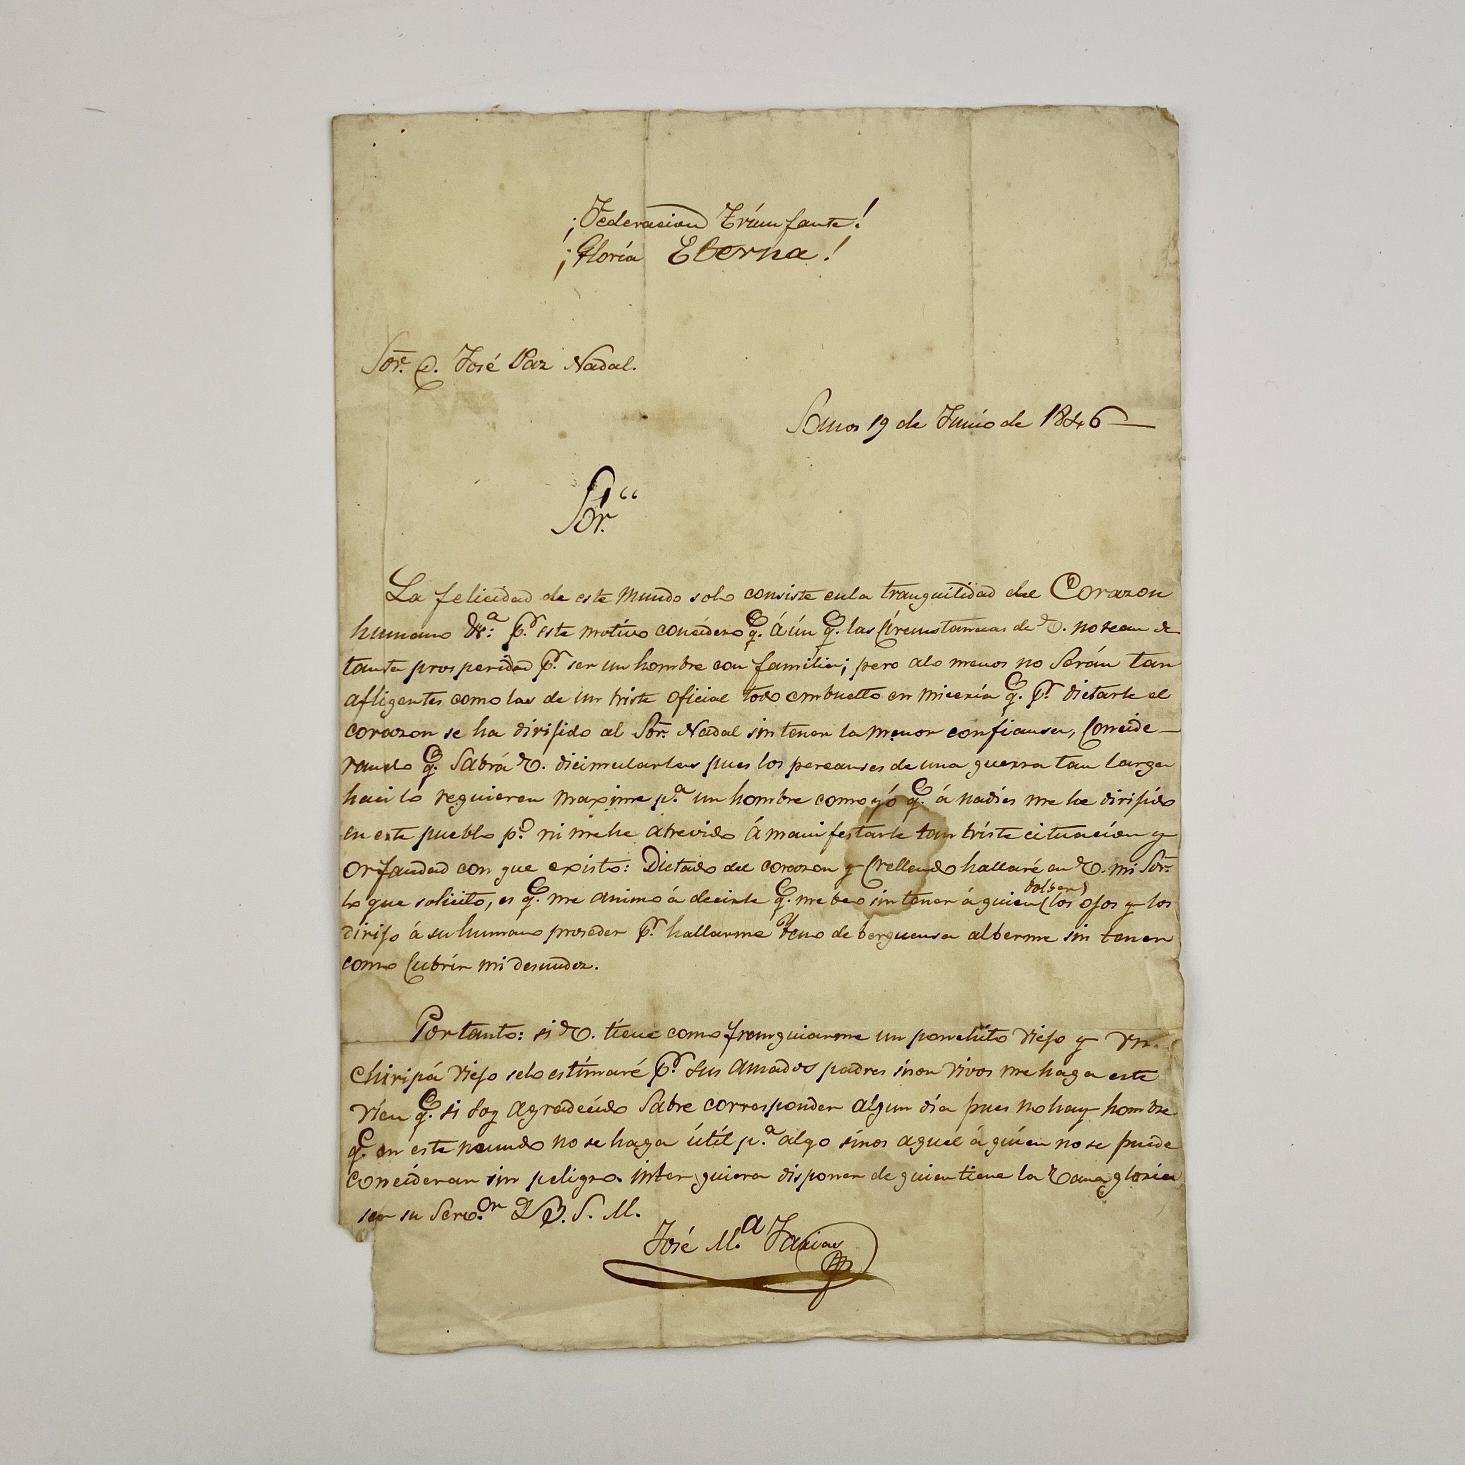 ¡Federacion Triunfante!
¡Gloria Eterna!
Sor. D. José Paz Nadal.
19 de Junio de 1846
Sor.
La felicidad de este Mundo solo consiste en la tranquilidad del Corazon
humano &.a p.r este motivo concidero q. á ún q. las Circunstancias de V. no sean de
tanta prosperidad p.r ser un hombre con familia; pero alo menos no Serán tan
afligentes como las de un triste oficial todo embuelto en miceria q. p.r dictarle el
corazon se ha dirijido al Sor. Nadal sin tener la menor confiansa, Concide-
rando q. Sabrá V. dicimularlas pues los percanses de una guerra tan larga
haci lo requieren maxime p.a un hombre como yó q. á nadies me he dirijido
en este pueblo p.r ni me he atrevido á manifestarle tan triste cituacion y
Orfandad con que existo: Dictado del corazon y Crellendo hallaré en V. mi Sor.
lo que solicito, es q. me animo á decirle q. me beo sin tener á quien bolber los ojos y los
dirijo á su humano proseder p.r hallarme lleno de berguensa al berme sin tener
como Cubrir mi desnudez.
Por tanto: si V. tiene como franquiarme un ponchito viejo y un
Chiripá viejo se lo estimaré p.r sus amados padres si son vivos me haga este
vien q. si soy agradecido Sabre corresponder algun dia pues no hay hombre
q. en este mundo no se haga útil p.a algo sinos aquel á quien no se puede
conciderar sin peligro. inter quiera disponer de quien tiene la vana gloria
ser su Serv.or Q. B. S. M.
José M.a Farias